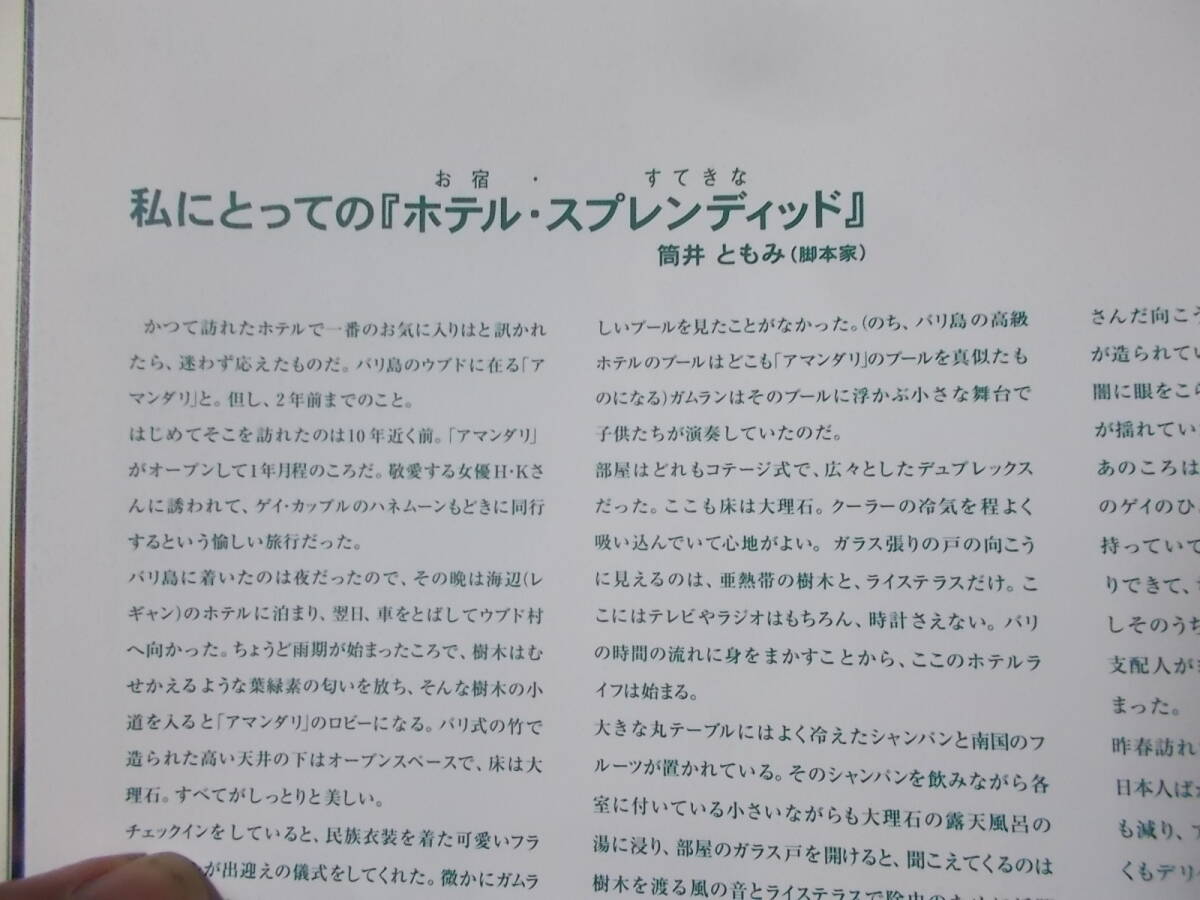 お宿 ・ すてきな
私にとっての『ホテル・スプレンディッド』
筒井 ともみ(脚本家)
かつて訪れたホテルで一番のお気に入りはと訊かれ
たら、迷わず応えたものだ。バリ島のウブドに在る「ア
マンダリ」と。但し、2年前までのこと。
はじめてそこを訪れたのは10年近く前。「アマンダリ」
がオープンして1年月程のころだ。敬愛する女優H・Kさ
んに誘われて、ゲイ・カップルのハネムーンもどきに同行
するという愉しい旅行だった。
バリ島に着いたのは夜だったので、その晩は海辺(レ
ギャン)のホテルに泊まり、翌日、車をとばしてウブド村
へ向かった。ちょうど雨期が始まったころで、樹木はむ
せかえるような葉緑素の匂いを放ち、そんな樹木の小
道を入ると「アマンダリ」のロビーになる。バリ式の竹で
造られた高い天井の下はオープンスペースで、床は大
理石。すべてがしっとりと美しい。
チェックインをしていると、民族衣装を着た可愛いフラ
が出迎えの儀式をしてくれた。微かにガムラ
しいプールを見たことがなかった。(のち、バリ島の高級
ホテルのプールはどこも「アマンダリ」のプールを真似たも
のになる)ガムランはそのプールに浮かぶ小さな舞台で
子供たちが演奏していたのだ。
部屋はどれもコテージ式で、広々としたデュプレックス
だった。ここも床は大理石。クーラーの冷気を程よく
吸い込んでいて心地がよい。ガラス張りの戸の向こう
に見えるのは、亜熱帯の樹木と、ライステラスだけ。こ
こにはテレビやラジオはもちろん、時計さえない。バリ
の時間の流れに身をまかすことから、ここのホテルラ
イフは始まる。
大きな丸テーブルにはよく冷えたシャンパンと南国のフ
ルーツが置かれている。そのシャンパンを飲みながら各
室に付いている小さいながらも大理石の露天風呂の
湯に浸り、部屋のガラス戸を開けると、聞こえてくるのは
樹木を渡る風の音とライステラスで
さんだ向こう
が造られてい
闇に眼をこら
が揺れてい
あのころは
のゲイのひ
持っていて
りできて、
しそのうち
支配人が
まった。
昨春訪れ
日本人ばか
も減り、
くもデリ